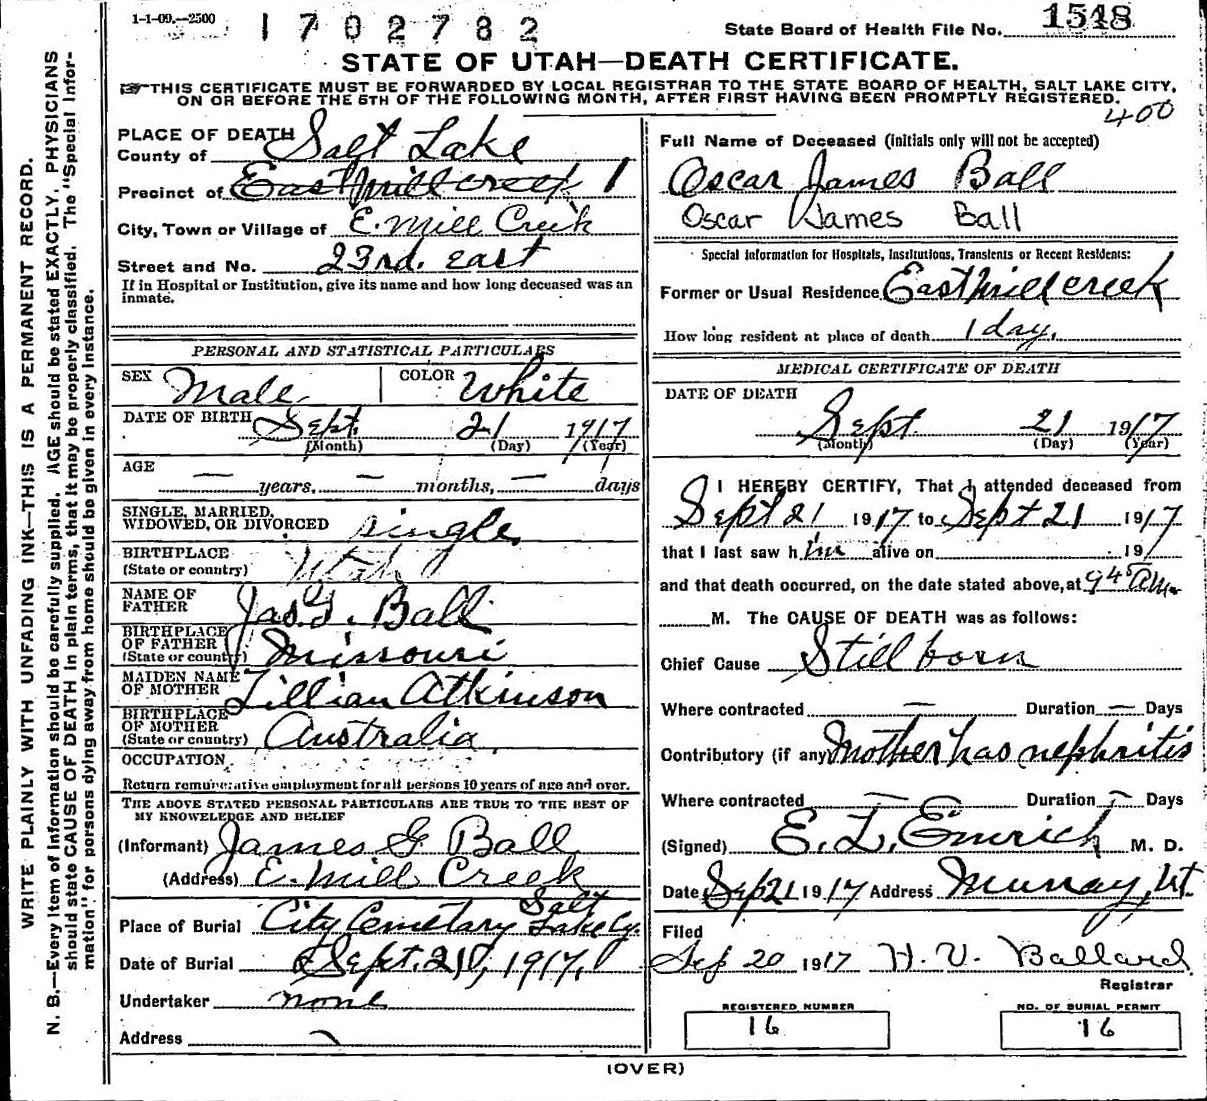 1-1-09.—2500
1702782
State Board of Health File No. 1518
STATE OF UTAH—DEATH CERTIFICATE.
THIS CERTIFICATE MUST BE FORWARDED BY LOCAL REGISTRAR TO THE STATE BOARD OF HEALTH, SALT LAKE CITY,
ON OR BEFORE THE 5TH OF THE FOLLOWING MONTH, AFTER FIRST HAVING BEEN PROMPTLY REGISTERED.
400
WRITE PLAINLY WITH UNFADING INK—THIS IS A PERMANENT RECORD.
N. B.—Every item of information should be carefully supplied. AGE should be stated EXACTLY. PHYSICIANS
should state CAUSE OF DEATH in plain terms, that it may be properly classified. The "Special Infor-
mation" for persons dying away from home should be given in every instance.
PLACE OF DEATH
County of Salt Lake
Precinct of East Mill creek 1
City, Town or Village of E. Mill Creek
Street and No. 23rd. east
If in Hospital or Institution, give its name and how long deceased was an
inmate.
PERSONAL AND STATISTICAL PARTICULARS
SEX Male COLOR White
DATE OF BIRTH Sept. 21 1917
(Month) (Day) (Year)
AGE
— years, — months, — days
SINGLE, MARRIED,
WIDOWED, OR DIVORCED single
BIRTHPLACE
(State or country) Utah
NAME OF
FATHER Jas. G. Ball
BIRTHPLACE
OF FATHER
(State or country) Missouri
MAIDEN NAME
OF MOTHER Lillian Atkinson
BIRTHPLACE
OF MOTHER
(State or country) Australia
OCCUPATION
Return remunerative employment for all persons 10 years of age and over.
THE ABOVE STATED PERSONAL PARTICULARS ARE TRUE TO THE BEST OF
MY KNOWELEDGE AND BELIEF
(Informant) James G Ball
(Address) E. Mill Creek
Place of Burial City Cemetary Salt Lake Cy.
Date of Burial Sept. 21, 1917,
Undertaker none
Address
Full Name of Deceased (initials only will not be accepted)
Oscar James Ball
Oscar James Ball
Special Information for Hospitals, Institutions, Transients or Recent Residents:
Former or Usual Residence East Mill creek
How long resident at place of death 1 day.
MEDICAL CERTIFICATE OF DEATH
DATE OF DEATH
Sept. 21 1917
(Month) (Day) (Year)
I HEREBY CERTIFY, That I attended deceased from
Sept 21 1917 to Sept 21 1917
that I last saw him alive on 191
and that death occurred, on the date stated above, at 9 A.M.
M. The CAUSE OF DEATH was as follows:
Chief Cause Still born
Where contracted — Duration — Days
Contributory (if any) Mother has nephritis
Where contracted — Duration — Days
(Signed) E. L. Emrich M. D.
Date Sep 21 1917 Address Murray, Ut.
Filed
Sep 20 1917 H. V. Ballard
Registrar
REGISTERED NUMBER
16
NO. OF BURIAL PERMIT
16
(OVER)